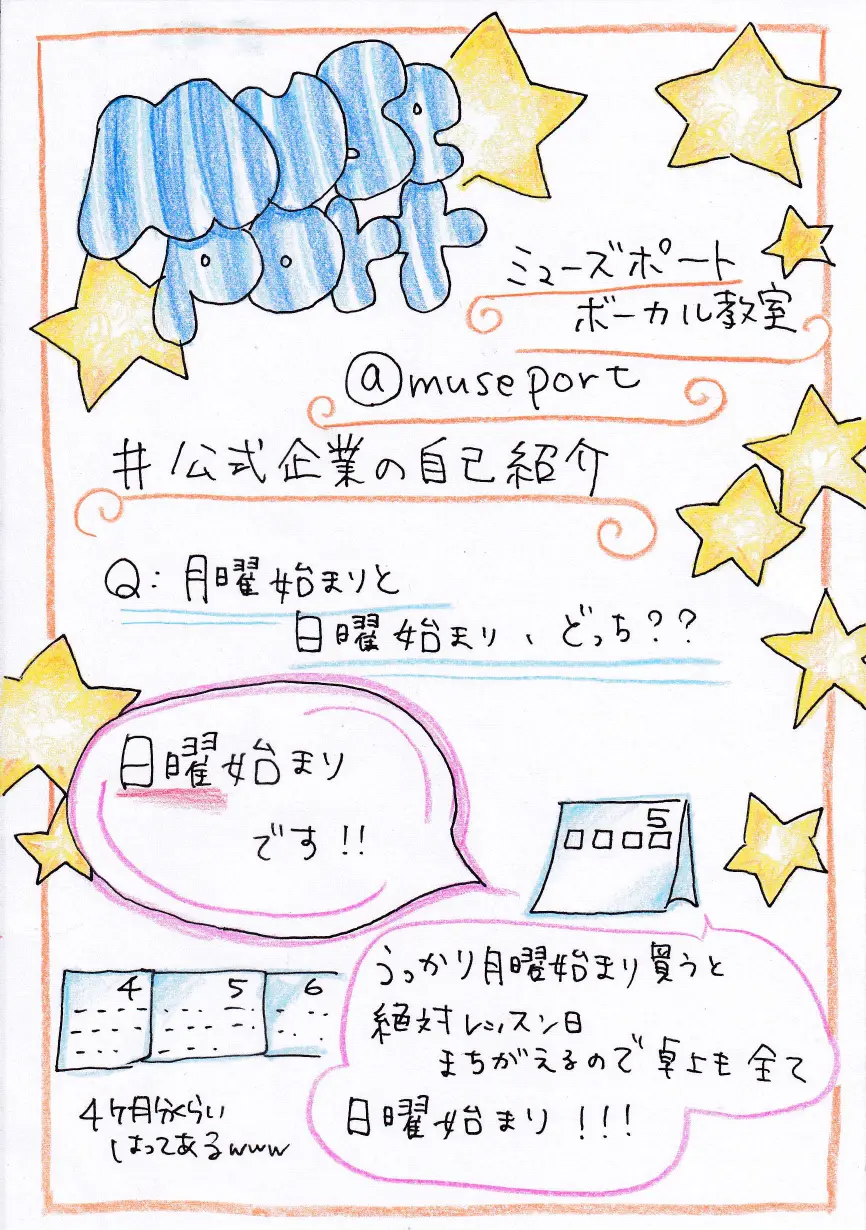 muse
port
ミューズポート
ボーカル教室
@museport
#公式企業の自己紹介
Q:月曜始まりと
日曜始まり、どっち??
日曜始まり
です!!
5
うっかり月曜始まり買うと
絶対レッスン日
まちがえるので卓上も全て
日曜始まり!!!
4 5 6
4ヶ月分くらい
はってあるwww